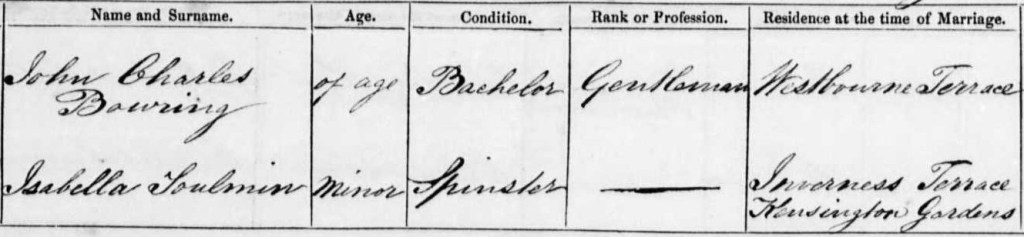 Name and Surname. Age. Condition. Rank or Profession. Residence at the time of Marriage.
John Charles Bowring of age Bachelor Gentleman Westbourne Terrace
Isabella Toulmin Minor Spinster — Inverness Terrace
Kensington Gardens